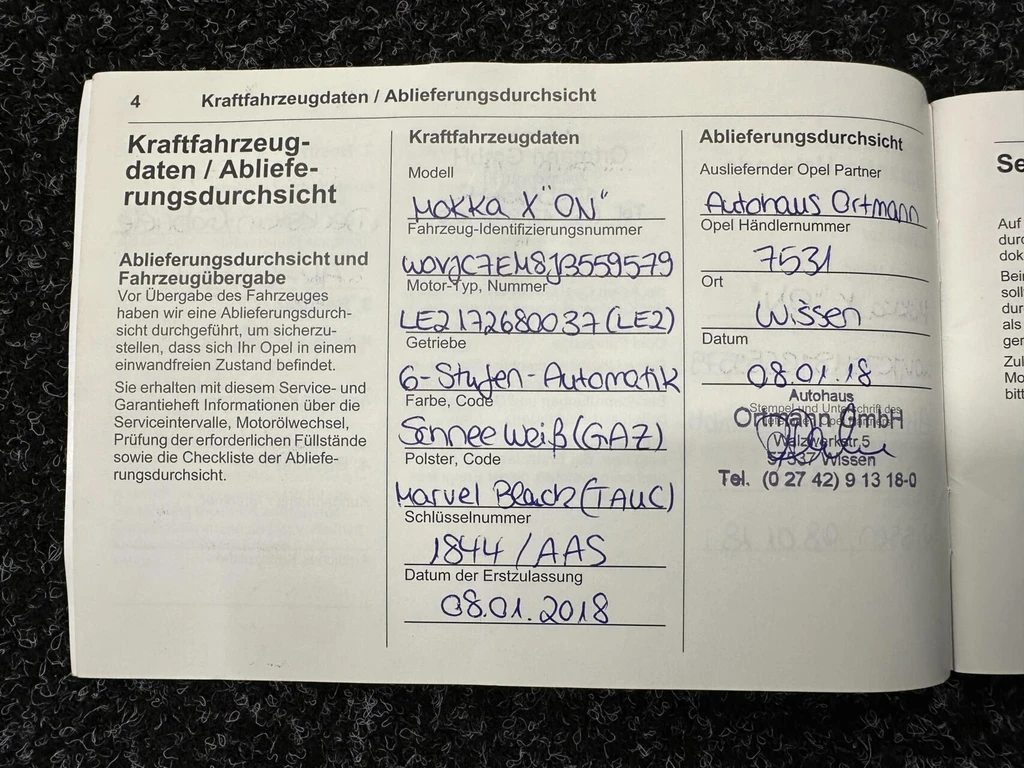 4 Kraftfahrzeugdaten / Ablieferungsdurchsicht
Kraftfahrzeug-
daten / Abliefe-
rungsdurchsicht
Ablieferungsdurchsicht und
Fahrzeugübergabe
Vor Übergabe des Fahrzeuges
haben wir eine Ablieferungsdurch-
sicht durchgeführt, um sicherzu-
stellen, dass sich Ihr Opel in einem
einwandfreien Zustand befindet.
Sie erhalten mit diesem Service- und
Garantieheft Informationen über die
Serviceintervalle, Motorölwechsel,
Prüfung der erforderlichen Füllstände
sowie die Checkliste der Abliefe-
rungsdurchsicht.
Kraftfahrzeugdaten
Modell
Mokka X "ON"
Fahrzeug-Identifizierungsnummer
W0VJC7EM8JB559579
Motor-Typ, Nummer
LE2 172680037 (LE2)
Getriebe
6-Stufen-Automatik
Farbe, Code
Schnee weiß (GAZ)
Polster, Code
Marvel Black (TAUC)
Schlüsselnummer
1844 / AAS
Datum der Erstzulassung
08.01.2018
Ablieferungsdurchsicht
Ausliefernder Opel Partner
Autohaus Ortmann
Opel Händlernummer
7531
Ort
Wissen
Datum
08.01.18
Autohaus
Stempel und Unterschrift des
Ortmann GmbH
Walzwerkstr. 5
57537 Wissen
Tel. (0 27 42) 9 13 18-0
Se
Auf
durc
dok
Bei
soll
dur
als
ger
Zul
Mo
bitt